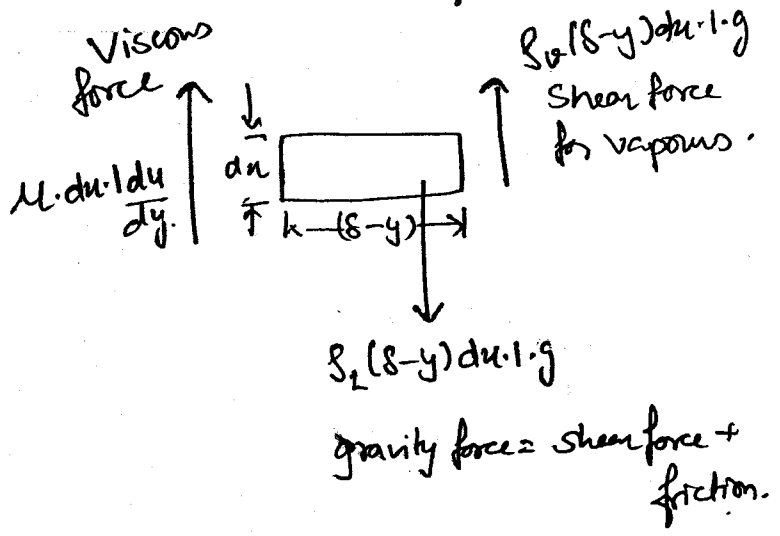 Viscous
force
μ.dx.1 du
dy.
dx
(δ-y)
ρv(δ-y)dx.1.g
Shear force
for vapours.
ρL(δ-y)dx.1.g
gravity force = shear force +
friction.